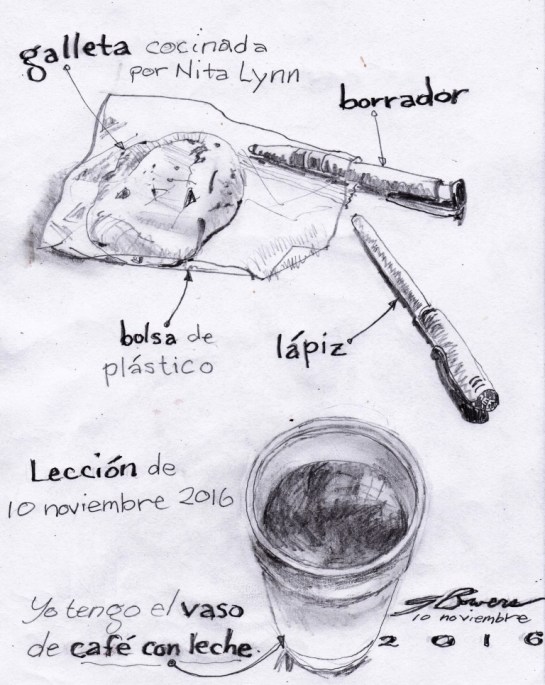 galleta cocinada
por Nita Lynn
borrador
bolsa de
plástico
lápiz
Lección de
10 noviembre 2016
Yo tengo el vaso
de café con leche.
S Bowers
10 noviembre
2016